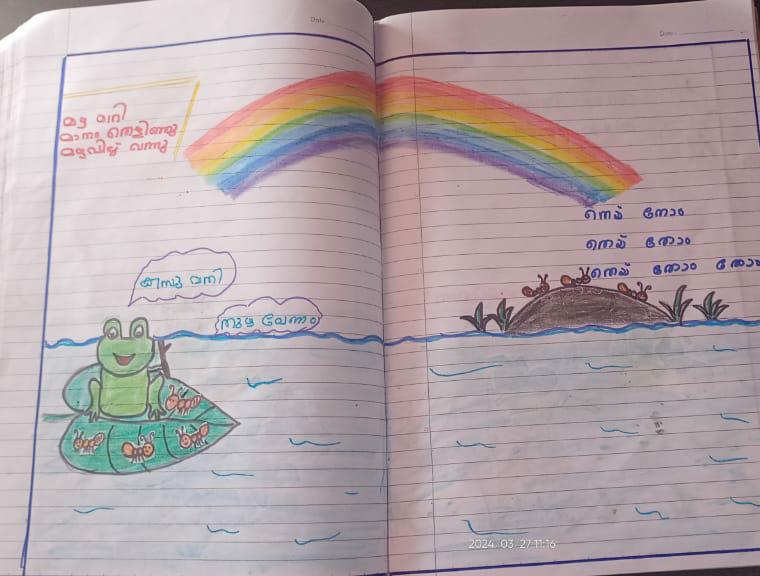 Date
Date
മഴ മാറി
മാനം തെളിഞ്ഞു
മഴവില്ല് വന്നു
തെയ് തോം
തെയ് തോം
തെയ് തോം തോം
തുഴ വേണം
2024. 03. 27 11:16